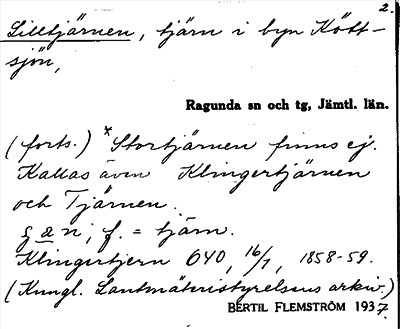 2.
Lilltjärnen, tjärn i byn Kött-
sjön,
Ragunda sn och tg, Jämtl. län.
(forts.) *Stortjärnen finns ej.
Kallas även Klingertjärnen
och Tjärnen.
f. = tjärn.
Klingertjern 040, 16/7, 1858-59.
(Kungl. Lantmäteristyrelsens arkiv.)
BERTIL FLEMSTRÖM 1937.